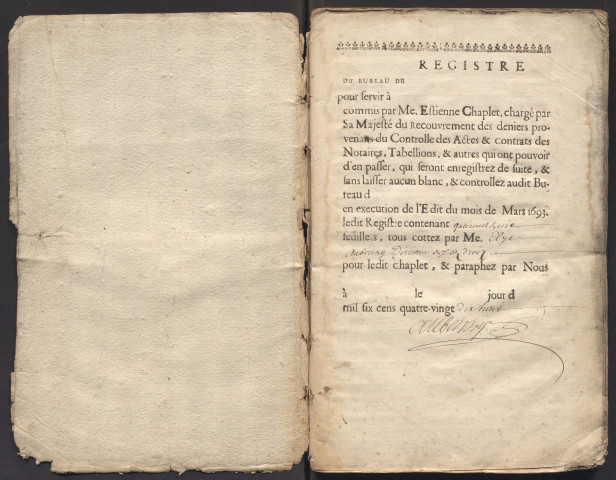 REGISTRE
DU BUREAU DE
pour servir à
commis par Me. Estienne Chaplet, chargé par
Sa Majesté du Recouvrement des deniers pro-
venans du Controlle des Actes & contrats des
Notaires, Tabellions, & autres qui ont pouvoir
d'en passer, qui seront enregistrez de suite, &
sans laisser aucun blanc, & controllez audit Bu-
reau d
en execution de l'Edit du mois de Mars 1693.
ledit Registre contenant
feuillets, tous cottez par Me.
pour ledit chaplet, & paraphez par Nous
à le jour d
mil six cens quatre-vingt